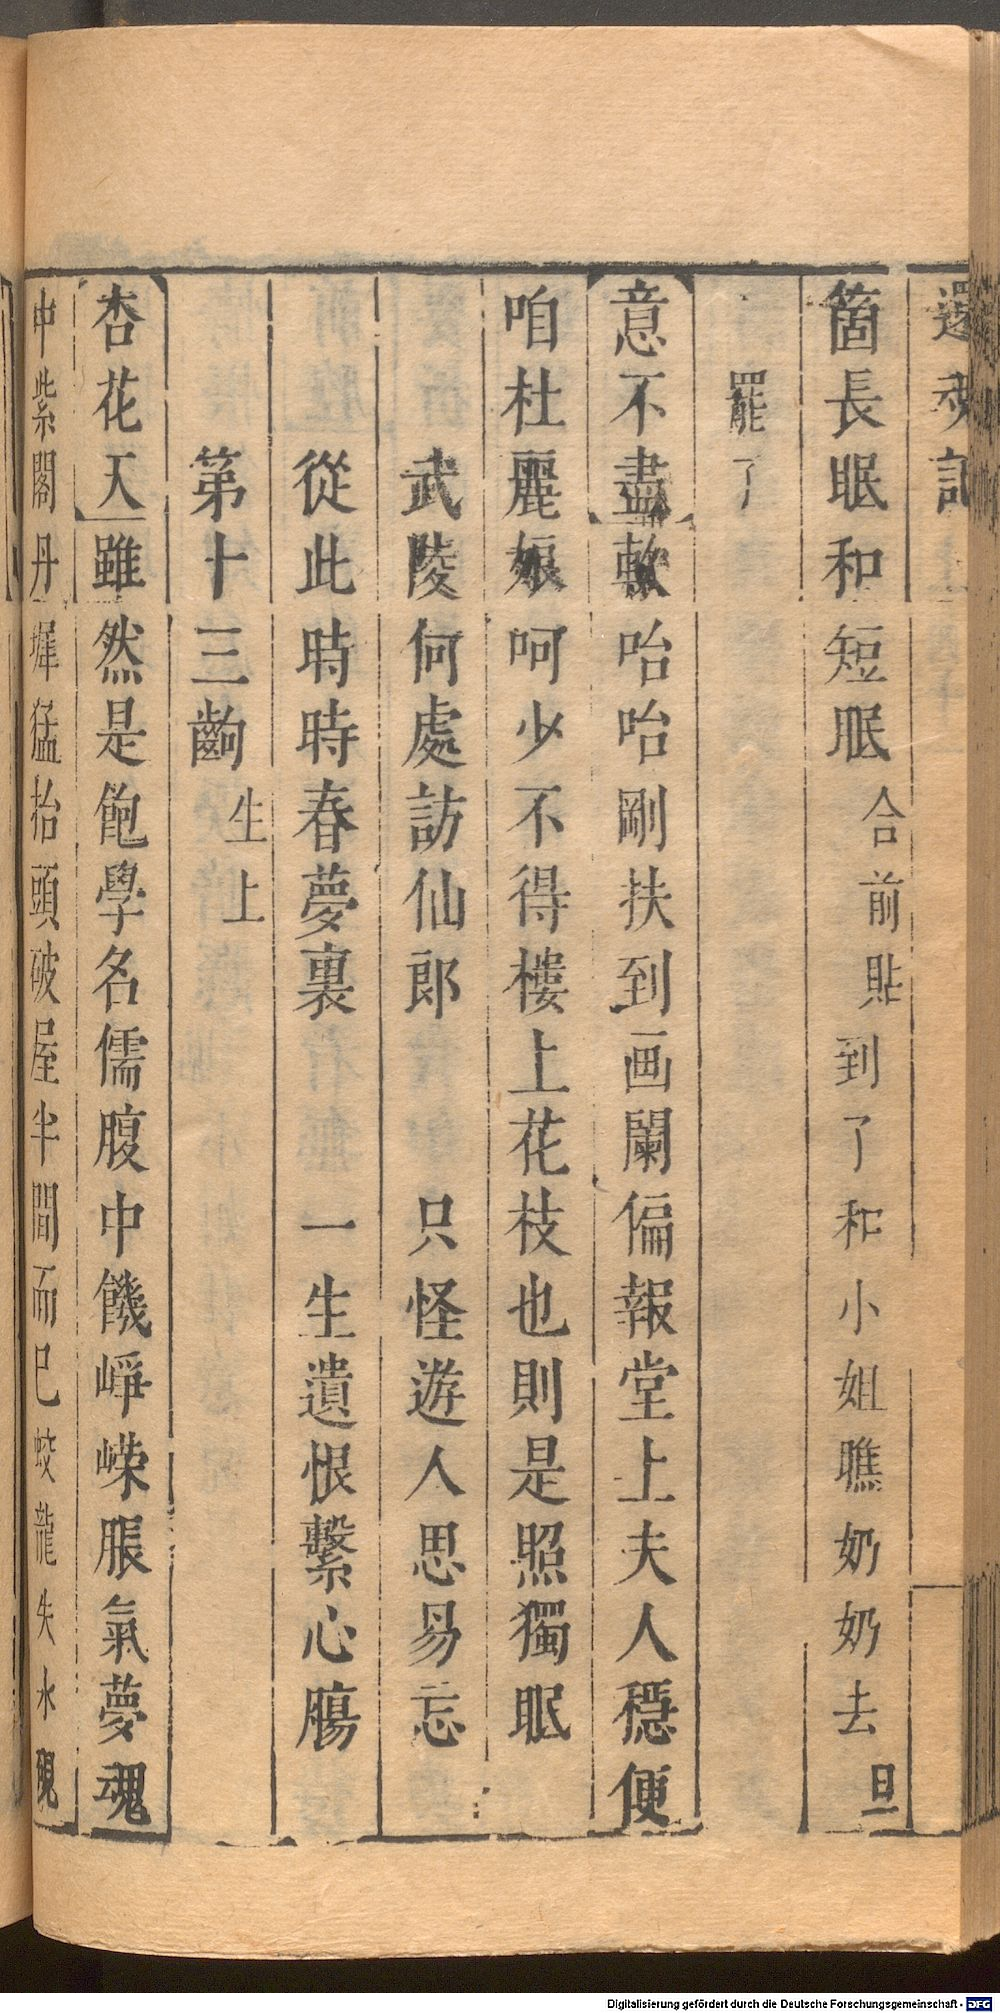 還魂記
箇長眠和短眠合前貼到了和小姐瞧奶奶去旦
罷了
意不盡軟咍咍剛扶到画闌偏報堂上夫人穩便
咱杜麗娘呵少不得樓上花枝也則是照獨眠
武陵何處訪仙郎　只怪遊人思易忘
從此時時春夢裏　一生遺恨繫心腸
第十三齣生上
杏花天雖然是飽學名儒腹中饑崢嶸脹氣夢魂
中紫閣丹墀猛抬頭破屋半間而已蛟龍失水硯
Digitalisierung gefördert durch die Deutsche Forschungsgemeinschaft - DFG